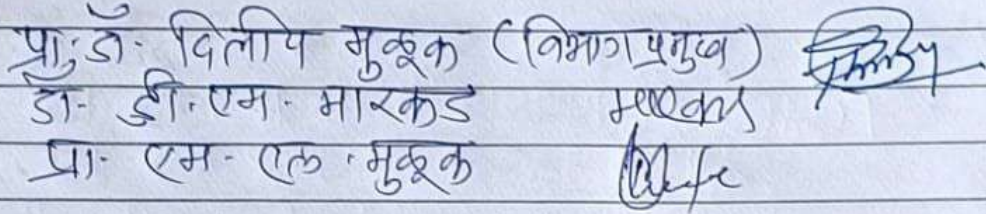 प्रा. डॉ. दिलीप मुळूक (विभाग प्रमुख)
डॉ. डी. एम. मारकड
प्रा. एम. एल. मुळूक